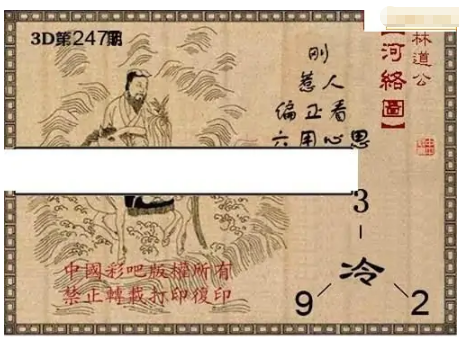 3D第247期
刚
惹人
偏正看
六用心思
林道公
【河络圖】
3
冷
9
2
中國彩吧版權所有
禁止轉載打印復印